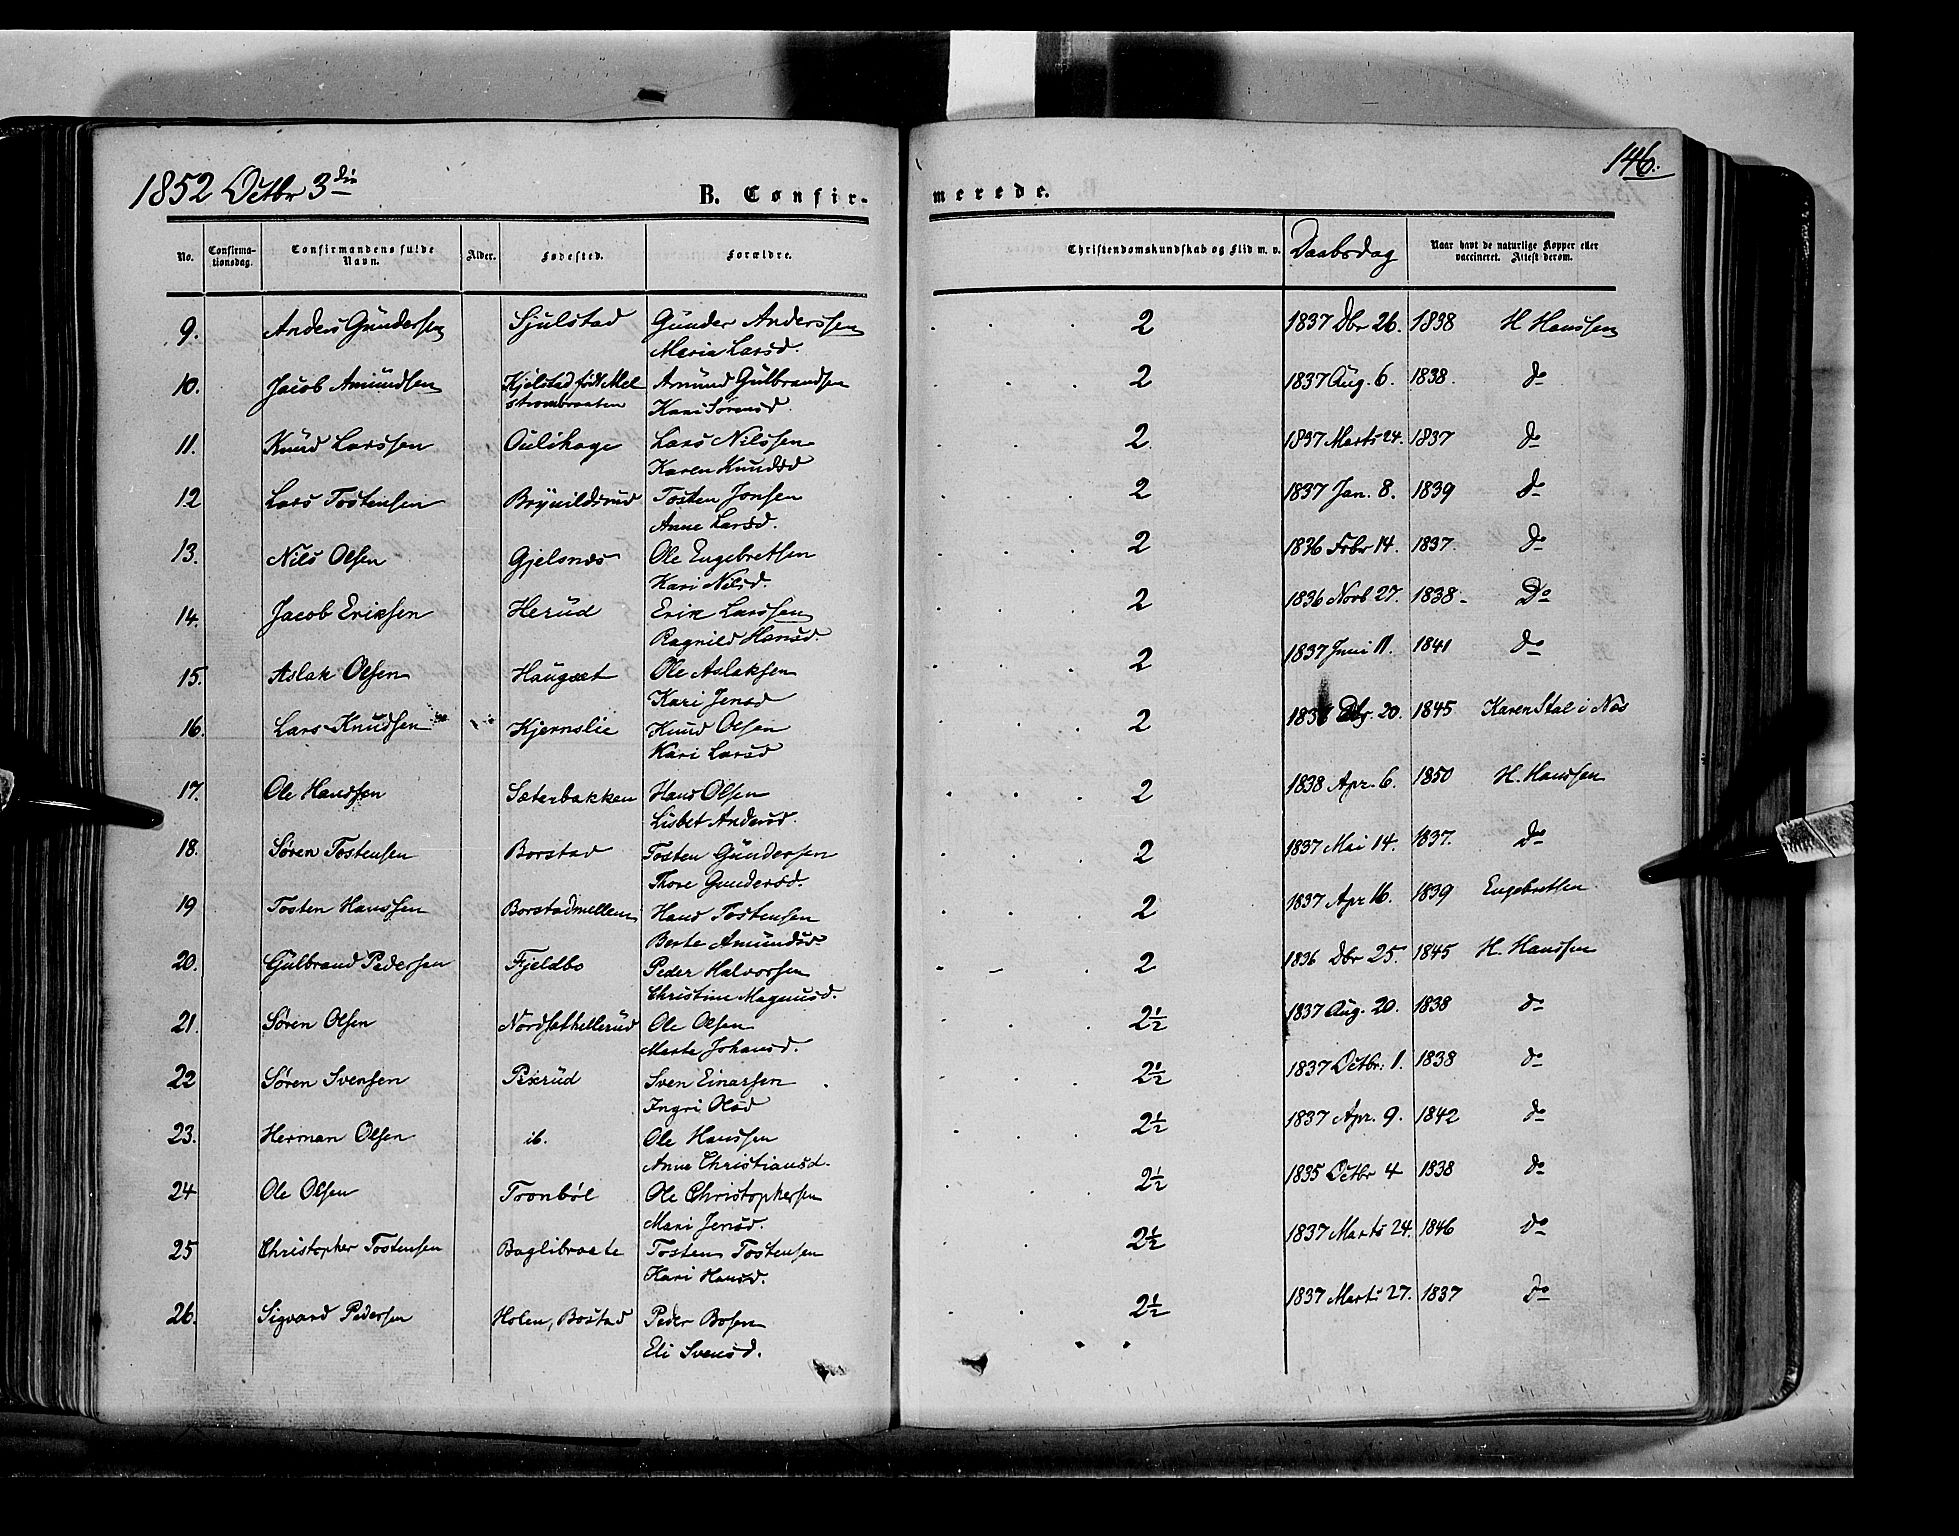 1852 Octbr 3die
B. Confir-
merede.
146.
No.
Confirma-
tionsdag.
Confirmandens fulde
Navn.
Alder.
Fødested.
Forældre.
Christendomskundskab og Flid m. v.
Daabsdag
Naar havt de naturlige Kopper eller
vaccineret. Attest derom.
9. Anders Gundersen Sjulstad Gunder Anderssen 2 1837 Dbr 26. 1838 H Hanssen
Maria Larsd.
10. Jacob Amundsen Kjelstad født Mel Amund Gulbrandsen 2 1837 Aug. 6. 1838. do
strombraaten Kari Sørensd.
11. Knud Larssen Oulihage Lars Nilssen 2 1837 Marts 24. 1837 do
Karen Knudsd
12 Lars Tostensen Brynildsrud Tosten Jonsen 2 1837 Jan. 8. 1839 do
Anne Larsd.
13. Nils Olsen Gjelsnes Ole Engebretsen 2 1836 Febr 14. 1837. do
Kari Nilsd.
14. Jacob Eriksen Herud Erik Larssen 2 1836 Novb 27. 1838 - Do
Ragnild Hansd.
15. Aslak Olsen Haugset Ole Aslaksen 2 1837 Juni 11. 1841 do
Kari Jensd
16. Lars Knudsen Kjernslie Knud Olsen 2 Dbr. 20. 1845 Karen Stal i Nes
Kari Larsd
17. Ole Hanssen Sæterbakken Hans Olsen 2 1838 Apr. 6. 1850 H. Hanssen
Lisbet Andersd.
18. Søren Tostensen Borstad Tosten Gundersen 2 1837 Mai 14. 1837. do
Thore Gundersd.
19 Tosten Hanssen Borstadmellem Hans Tostensen 2 1837 Apr 16. 1839 Engebretsen
Berte Amundsd
20. Gulbrand Pedersen Fjeldbo Peder Halvorsen 2 1836 Dbr 25. 1845 H. Hanssen
Christine Magnusd.
21. Søren Olsen Nordsethellerud Ole Olsen 2½ 1837 Aug. 20. 1838 do
Marte Johansd.
22 Søren Svensen Pixrud Sven Einarsen 2½ 1837 Octbr: 1. 1838 do
Ingri Olsd
23. Herman Olsen ib. Ole Hanssen 2½ 1837 Apr. 9. 1842 do
Anne Christiansd.
24 Ole Olsen Tronbøl Ole Christophersen 2½ 1835 Octbr 4 1838 do
Mari Jensd.
25 Christopher Tostensen Baglibraate Tosten Tostensen 2½ 1837 Marts 24. 1846 do
Kari Hansd.
26. Sigvard Pedersen Holen, Bostad Peder Bosen 2½ 1837 Marts 27. 1837 do
Eli Svensd.